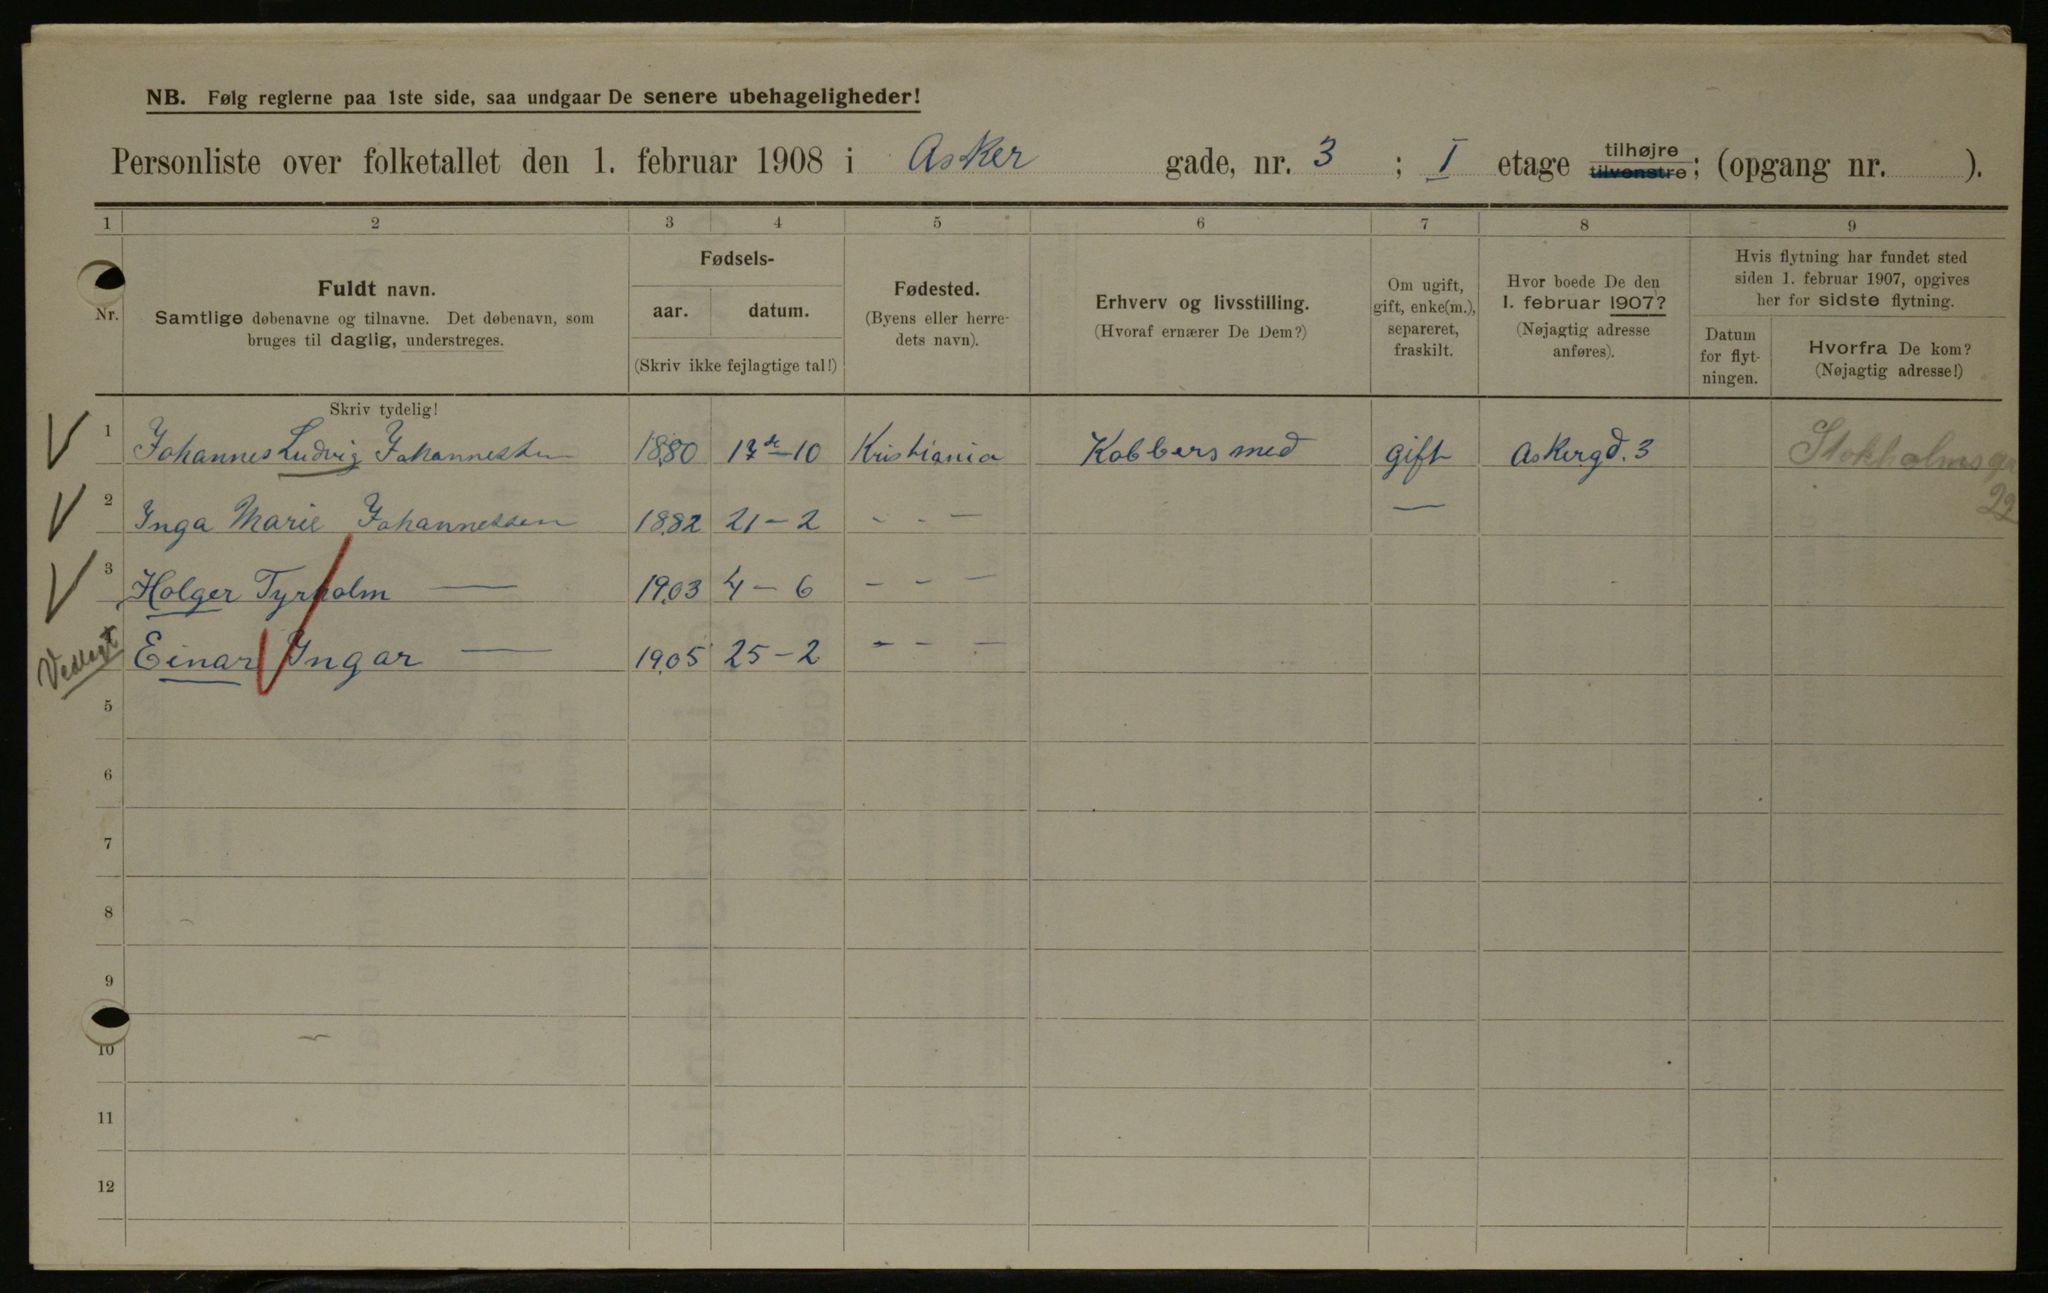 NB. Følg reglerne paa 1ste side, saa undgaar De senere ubehageligheder!
Personliste over folketallet den 1. februar 1908 i Asker gade, nr. 3 ; I etage tilhøjre tilvenstre; (opgang nr. ).
1 2 3 4 5 6 7 8 9
Nr.
Fuldt navn.
Samtlige døbenavne og tilnavne. Det døbenavn, som
bruges til daglig, understreges.
Fødsels-
aar. datum.
(Skriv ikke fejlagtige tal!)
Fødested.
(Byens eller herre-
dets navn).
Erhverv og livsstilling.
(Hvoraf ernærer De Dem?)
Om ugift,
gift, enke(m.),
separeret,
fraskilt.
Hvor boede De den
1. februar 1907?
(Nøjagtig adresse
anføres).
Hvis flytning har fundet sted
siden 1. februar 1907, opgives
her for sidste flytning.
Datum
for flyt-
ningen.
Hvorfra De kom?
(Nøjagtig adresse!)
Skriv tydelig!
1 Johannes Ludvig Johannessen 1880 17de-10 Kristiania Kobbersmed gift Askergd. 3 Stokholmsgt
22
2 Inga Marie Johannessen 1882 21-2 - - — —
3 Holger Tyrholm — 1903 4-6 - - —
Vedlagt Einar Ingar — 1905 25-2 - - —
5
6
7
8
9
10
11
12